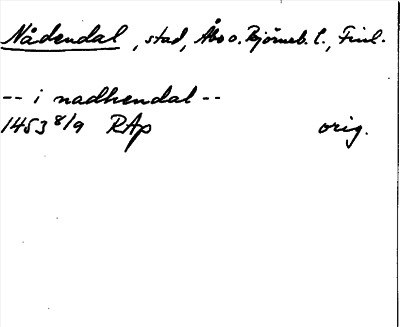 Nådendal, stad, Åbo o. Björneb. l., Finl.
-- i nadhendal --
1453 8/9 RAp orig.